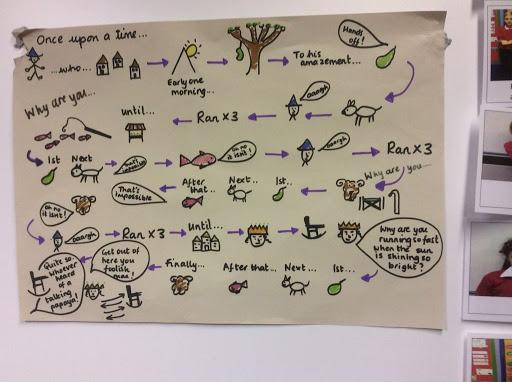 Once upon a time...
Hands off!
...who...
Early one morning...
To his amazement...
Why are you...
until...
Ran x3
aaagh
1st
Next
that's impossible
oh no it isn't!
aaargh
Ran x3
Why are you...
That's impossible
After that...
Next...
1st..
oh no it isn't!
aaargh
Ran x3
Until...
Why are you running so fast when the sun is shining so bright?
Quite so. Whoever heard of a talking papaya!
Get out of here you foolish man!
Finally...
After that...
Next...
1st...